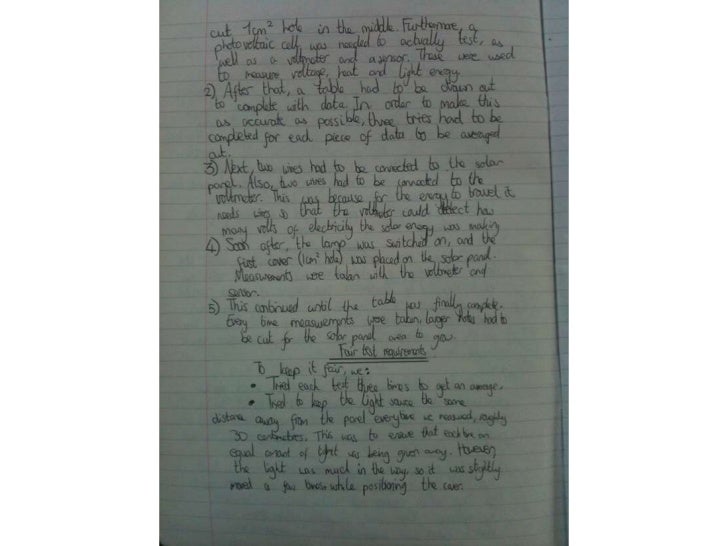 cut 1cm² hole in the middle. Furthermore, a
photovoltaic cell was needed to actually test, as
well as a voltmeter and a sensor. These were used
to measure voltage, heat and light energy.
2) After that, a table had to be drawn out
to complete with data. In order to make this
as accurate as possible, three tries had to be
completed for each piece of data to be averaged
out.
3) Next, two wires had to be connected to the solar
panel. Also, two wires had to be connected to the
voltmeter. This was because for the energy to travel it
needs wires so that the voltmeter could detect how
many volts of electricity the solar energy was making
4) Soon after, the lamp was switched on, and the
first cover (1cm² hole) was placed on the solar panel.
Measurements were taken with the voltmeter and
sensor.
5) This continued until the table was finally complete.
Every time measurements were taken, larger holes had to
be cut for the solar panel area to grow.
Fair test requirements
To keep it fair, we:
• Tried each test three times to get an average.
• Tried to keep the light source the same
distance away from the panel everytime we measured, roughly
30 centimetres. This was to ensure that each time an
equal amount of light was being given away. However,
the light was much in the way so it was slightly
moved a few times while positioning the cover.